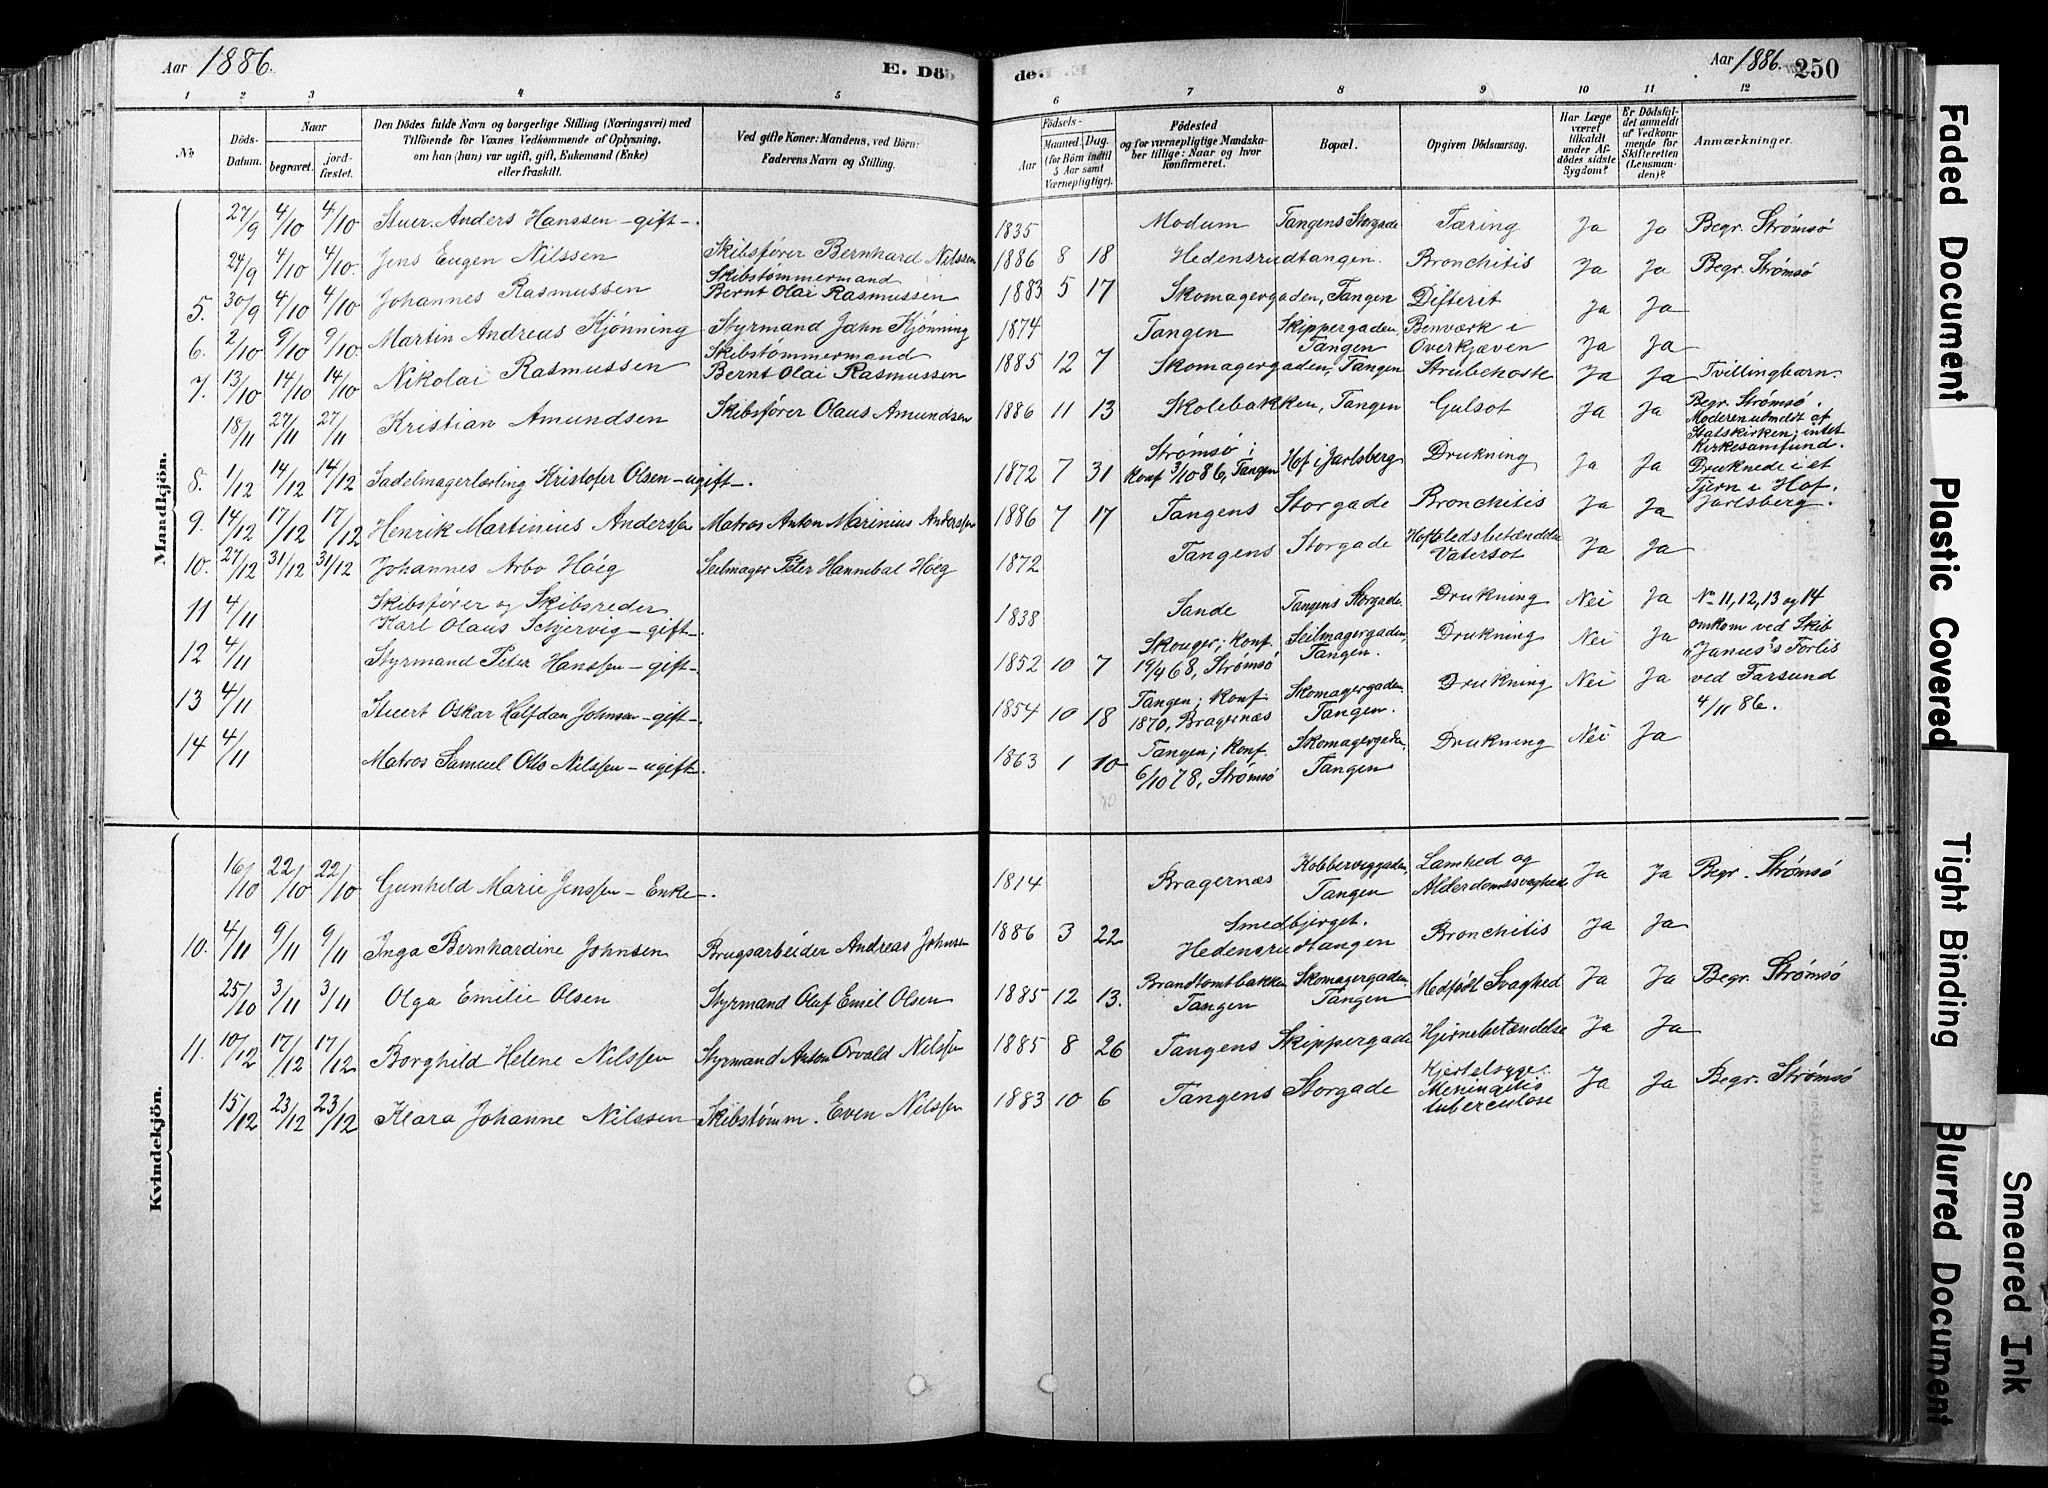 Aar 1886.
E. Dö
de.
Aar 1886. 250
1 2 3 4 5 6 7 8 9 10 11 12
No.
Döds-Datum.
Naar
begravet.
jordfæstet.
Den Dödes fulde Navn og borgerlige Stilling (Næringsvei) med
Tilföiende for Voxnes Vedkommende af Oplysning,
om han (hun) var ugift, gift, Enkemand (Enke)
eller fraskilt.
Ved gifte Koner: Mandens, ved Börn:
Faderens Navn og Stilling.
Födsels-
Aar
Maaned. Dag.
(for Börn indtil
5 Aar samt
Værnepligtige).
Födested
og for værnepligtige Mandska-
ber tillige: Naar og hvor
konfirmeret.
Bopæl.
Opgiven Dödsaarsag.
Har Læge
været
tilkaldt
under Af-
dödes sidste
Sygdom?
Er Dödsfal-
det anmeldt
af Vedkom-
mende for
Skifteretten
(Lensman-
den)?
Anmærkninger.
Mandkjön.
27/9 4/10 4/10 Stuer. Anders Hanssen - gift -. 1835 Modum Tangens Storgade Tæring Ja Ja Begr. Strømsø
24/9 4/10 4/10. Jens Eugen Nilssen Skibsfører Bernhard Nilssen 1886 8 18 Hedensrudtangen. Bronchitis Ja Ja Begr. Strømsø
Skibstømmermand
5. 30/9 4/10 4/10 Johannes Rasmussen Bernt Olai Rasmussen 1883 5 17 Skomagergaden, Tangen Difterit Ja Ja
6. 2/10 9/10 9/10. Martin Andreas Kjønning Styrmand Jahn Kjønning 1874 Tangen Skippergaden, Tangen Benværk i Overkjæven Ja Ja
Skibstømmermand
7. 13/10 14/10 14/10 Nikolai Rasmussen Bernt Olai Rasmussen 1885 12 7 Skomagergaden, Tangen Strubehoste Ja Ja Tvillingbarn.
18/11 27/11 27/11 Kristian Amundsen Skibsfører Olaus Amundsen 1886 11 13 Skolebakken, Tangen Gulsot Ja Ja Begr. Strømsø.
Moderen udmeldt af
Statskirken; intet
Kirkesamfund.
8. 1/12 14/12 14/12 Sadelmagerlærling Kristofer Olsen - ugift -. 1872 7 31 Strømsø; Konf 3/10 86, Tangen Hof i Jarlsberg Drukning Ja Ja Druknede i et
Tjern i Hof.
Jarlsberg.
9. 14/12 17/12 17/12 Henrik Martinius Anderssen Matros Anton Marinius Anderssen 1886 7 17 Tangens Storgade Bronchitis Ja Ja
10. 27/12 31/12 31/12 Johannes Arbo Höeg Seilmager Peter Hannibal Höeg 1872 Tangens Storgade Hofteledsbetændelse Vatersot Ja Ja
11 4/11 Skibsfører og Skibsreder
Karl Olaus Schjervig - gift -. 1838 Sande Tangens Storgade. Drukning Nei Ja No 11, 12, 13 og 14
omkom ved Skib
12 4/11 Styrmand Peter Hanssen - gift -. 1852 10 7 Skouger; Konf. 19/4 68, Strømsø Seilmagergaden, Tangen. Drukning Nei Ja "Janus"s Forlis
13 4/11 Stuert Oskar Halfdan Johnsen - gift -. 1854 10 18 Tangen; Konf 1870, Bragernæs Skomagergaden, Tangen. Drukning Nei Ja ved Farsund
4/11 86.
14 4/11 Matros Samuel Otto Nilssen - ugift. 1863 1 10 Tangen; Konf. 6/10 78, Strømsø Skomagergaden, Tangen Drukning Nei Ja
Kvindekjön.
16/10 22/10 22/10 Gunhild Marie Jenssen - Enke -. 1814 Bragernæs Kobberviggaden, Tangen Lamhed og Alderdomssvaghed Ja Ja Begr. Strømsø
10. 4/11 9/11 9/11 Inga Bernhardine Johnsen Brugsarbeider Andreas Johnsen 1886 3 22 Smedbjerget. Hedensrudtangen Bronchitis Ja Ja
25/10 3/11 3/11 Olga Emilie Olsen Styrmand Olaf Emil Olsen 1885 12 13. Brandtomtbakken Tangen Skomagergaden, Tangen Medfødt Svaghed Ja Ja Begr. Strømsö
11. 10/12 17/12 17/12 Borghild Helene Nilssen Styrmand Anton Orvald Nilssen 1885 8 26 Tangens Skippergade Hjernebetændelse Ja Ja
15/12 23/12 23/12 Klara Johanne Nilssen Skibstømm. Even Nilssen 1883 10 6 Tangens Storgade Kjertelsyge. Meningitis tuberculose Ja Ja Begr. Strømsö
Faded Document
Plastic Covered
Tight Binding
Blurred Document
Smeared Ink